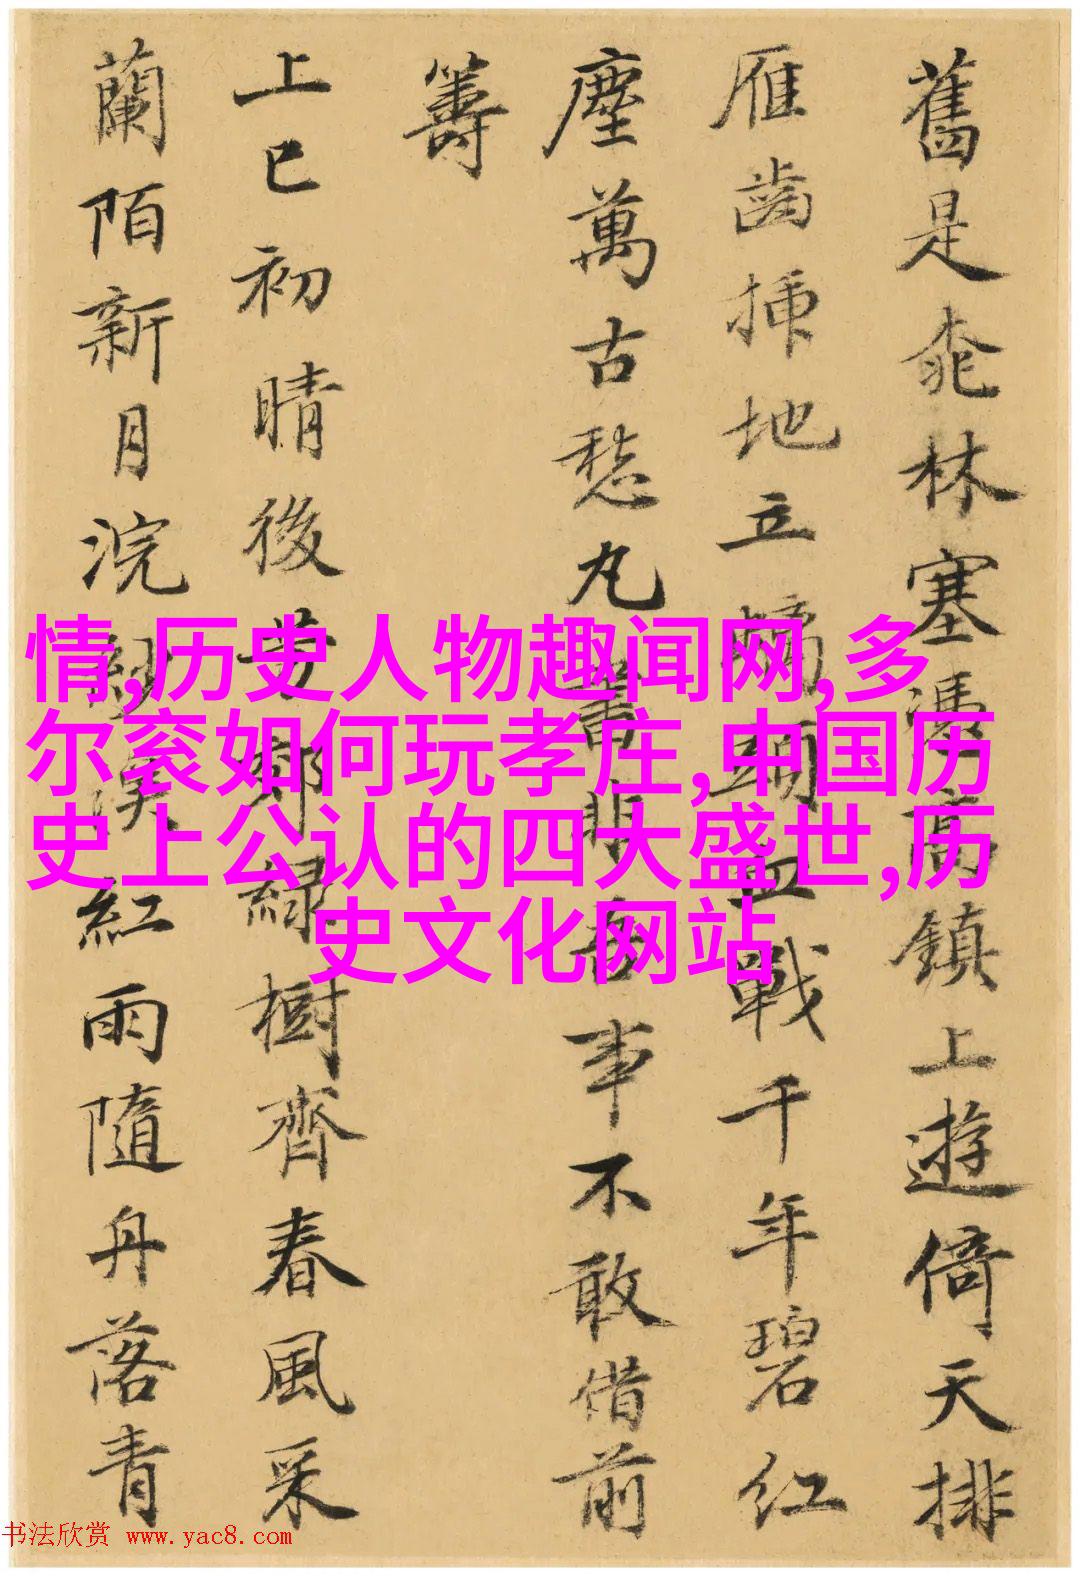 舊是桃林塞憑高鎮上遊倚天排
雁齒挿地立螭頭血戰千年碧紅
塵萬古愁丸書非吾事不敢借前
籌
上巳初晴後芳郊綠樹齊春風采
蘭陌新月浣紗溪紅雨隨舟落青
情,历史人物趣闻网,多
尔衮如何玩孝庄,中国历
史上公认的四大盛世,历
史文化网站
书法欣赏 www.yac8.com